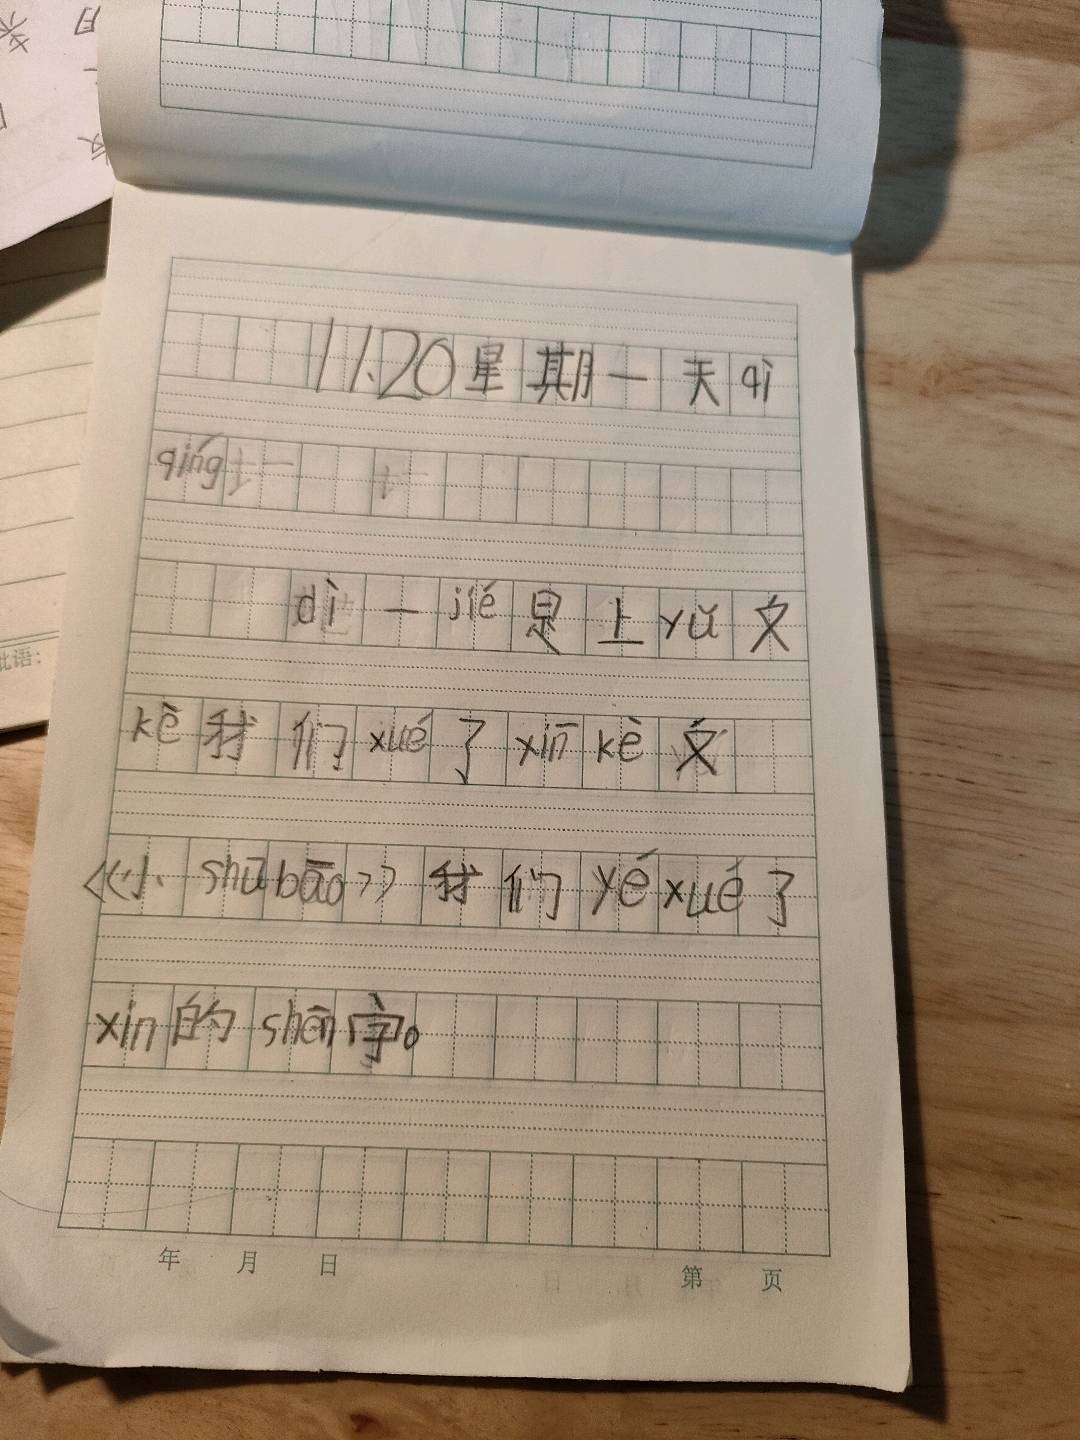 11.20星期一天qì
qíng
dì一jié是上yǔ文
kè我们xué了xīn kè文
《小shūbāo》我们yéxué了
xīn的shēn字。
年 月 日 第 页
批语：
月